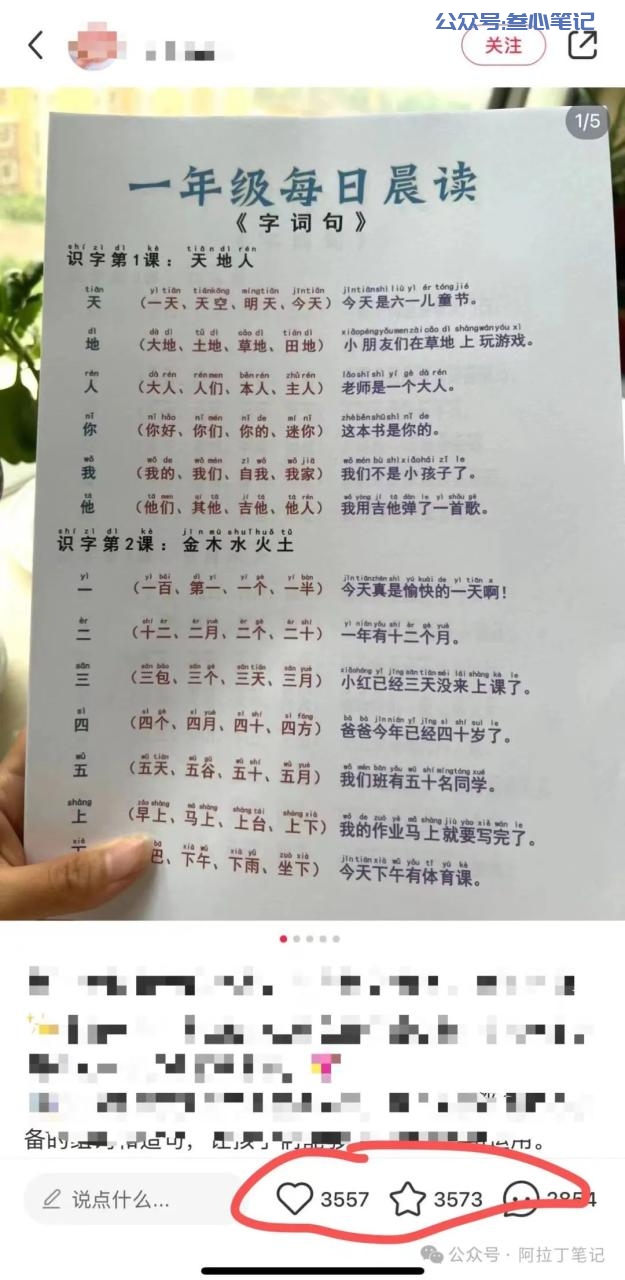 公众号:叁心笔记
关注
1/5
一年级每日晨读
《字词句》
shí zì dì kè tiān dì rén
识字第1课：天地人
tiān yì tiān tiānkōng míngtiān jīntiān jīntiānshì liù yī ér tóng jié
天 （一天、天空、明天、今天） 今天是六一儿童节。
dì dà dì tǔ dì cǎo dì tián dì xiǎopéngyǒumen zài cǎo dì shàngwányóu xì
地 （大地、土地、草地、田地） 小朋友们在草地上玩游戏。
rén dà rén rénmen běn rén zhǔ rén lǎo shī shì yí gè dà rén
人 （大人、人们、本人、主人） 老师是一个大人。
nǐ nǐ hǎo nǐ men nǐ de mí nǐ zhèběnshūshì nǐ de
你 （你好、你们、你的、迷你） 这本书是你的。
wǒ wǒ de wǒ men zì wǒ wǒ jiā wǒ men bú shì xiǎohái zǐ le
我 （我的、我们、自我、我家） 我们不是小孩子了。
tā tā men qí tā jí tā tā rén wǒ yòng jí tā dàn le yì shǒu gē
他 （他们、其他、吉他、他人） 我用吉他弹了一首歌。
shí zì dì kè jīn mù shuǐ huǒ tǔ
识字第2课：金木水火土
yī yì bǎi dì yī yí gè yí bàn jīntiānzhēnshì yú kuài de yì tiān a
一 （一百、第一、一个、一半） 今天真是愉快的一天啊！
èr shí èr èr yuè èr gè èr shí yì nián yǒu shí èr gè yuè
二 （十二、二月、二个、二十） 一年有十二个月。
sān sān bāo sān gè sān tiān sān yuè xiǎohóng yǐ jīng sān tiān méi lái shàng kè le
三 （三包、三个、三天、三月） 小红已经三天没来上课了。
sì sì gè sì yuè sì shí sì fāng bà bà jīn nián yǐ jīng sì shí suì le
四 （四个、四月、四十、四方） 爸爸今年已经四十岁了。
wǔ wǔ tiān wǔ gǔ wǔ shí wǔ yuè wǒ men bān yǒu wǔ shí míng tóng xué
五 （五天、五谷、五十、五月） 我们班有五十名同学。
shàng zǎo shàng mǎ shàng shàng tái shàng xià wǒ de zuò yè mǎ shàng jiù yào xiě wán le
上 （早上、马上、上台、上下） 我的作业马上就要写完了。
xià bā xià wǔ xià yǔ zuò xià jīn tiān xià wǔ yǒu tǐ yù kè
巴、下午、下雨、坐下） 今天下午有体育课。
说点什么...
3557
3573
2854
公众号 · 阿拉丁笔记